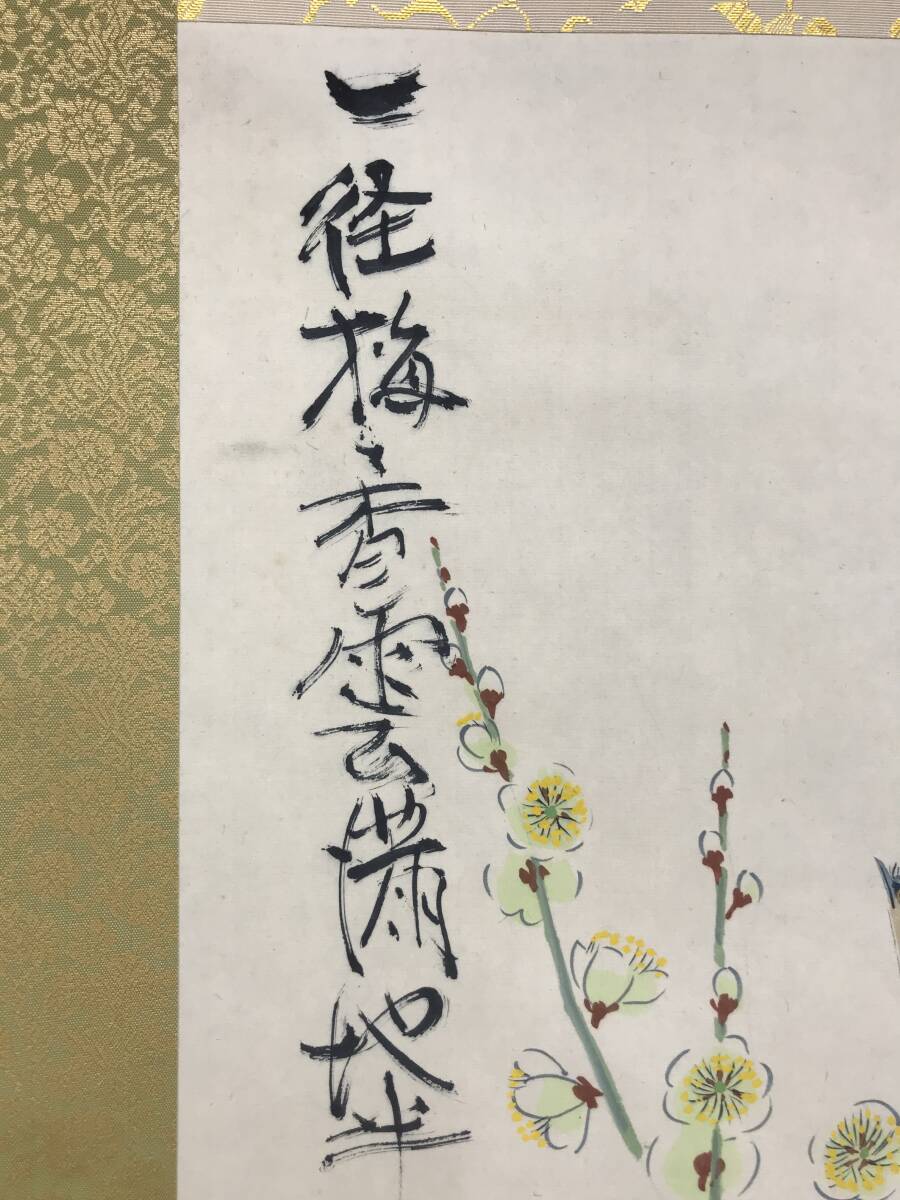 一径梅香雲満地半